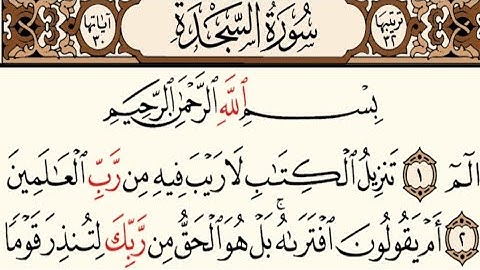 ترتيبها ٣٢ سُورَةُ السَّجْدَةِ آياتها ٣٠
بِسْمِ ٱللَّهِ ٱلرَّحْمَٰنِ ٱلرَّحِيمِ
الٓمٓ ١ تَنزِيلُ ٱلْكِتَٰبِ لَا رَيْبَ فِيهِ مِن رَّبِّ ٱلْعَٰلَمِينَ
٢ أَمْ يَقُولُونَ ٱفْتَرَىٰهُ ۚ بَلْ هُوَ ٱلْحَقُّ مِن رَّبِّكَ لِتُنذِرَ قَوْمًا